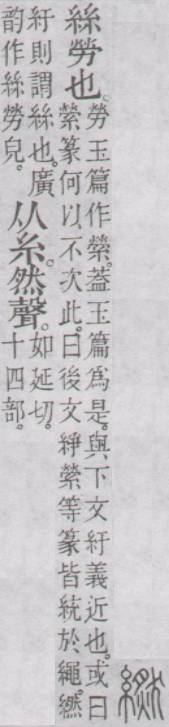 繎
絲勞也。
勞玉篇作縈。葢玉篇爲是。與下文紆義近也。或曰
縈篆何以不次此。曰後文䋫縈等篆皆統於繩。繎
紆則謂絲也。廣
韵作絲勞皃。
从糸然聲。
如延切。
十四部。